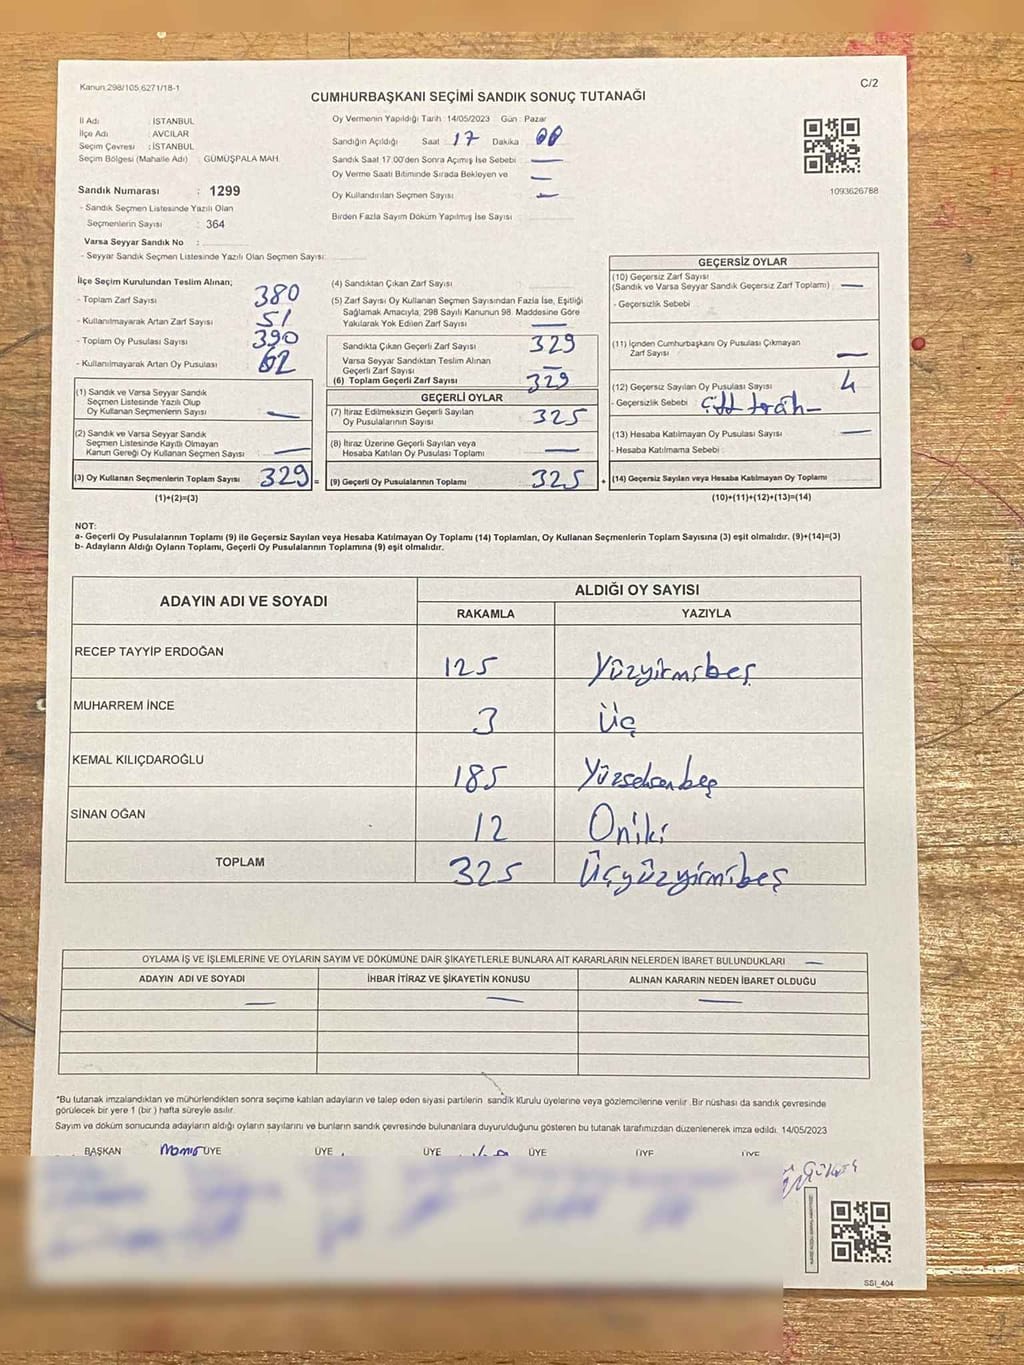 Kanun,298/105,6271/18-1
C/2
CUMHURBAŞKANI SEÇİMİ SANDIK SONUÇ TUTANAĞI
İl Adı : İSTANBUL
İlçe Adı : AVCILAR
Seçim Çevresi : İSTANBUL
Seçim Bölgesi (Mahalle Adı) : GÜMÜŞPALA MAH.
Sandık Numarası : 1299
- Sandık Seçmen Listesinde Yazılı Olan
Seçmenlerin Sayısı : 364
Varsa Seyyar Sandık No :
- Seyyar Sandık Seçmen Listesinde Yazılı Olan Seçmen Sayısı:
Oy Vermenin Yapıldığı Tarih : 14/05/2023 Gün : Pazar
Sandığın Açıldığı Saat 17 Dakika 00
Sandık Saat 17.00'den Sonra Açımış İse Sebebi —
Oy Verme Saati Bitiminde Sırada Bekleyen ve —
Oy Kullandırılan Seçmen Sayısı —
Birden Fazla Sayım Döküm Yapılmış İse Sayısı
1093626788
İlçe Seçim Kurulundan Teslim Alınan;
- Toplam Zarf Sayısı 380
- Kullanılmayarak Artan Zarf Sayısı 51
- Toplam Oy Pusulası Sayısı 390
- Kullanılmayarak Artan Oy Pusulası 62
(1) Sandık ve Varsa Seyyar Sandık
Seçmen Listesinde Yazılı Olup
Oy Kullanan Seçmenlerin Sayısı —
(2) Sandık ve Varsa Seyyar Sandık
Seçmen Listesinde Kayıtlı Olmayan
Kanun Gereği Oy Kullanan Seçmen Sayısı —
(3) Oy Kullanan Seçmenlerin Toplam Sayısı 329 =
(1)+(2)=(3)
(4) Sandıktan Çıkan Zarf Sayısı
(5) Zarf Sayısı Oy Kullanan Seçmen Sayısından Fazla İse, Eşitliği
Sağlamak Amacıyla, 298 Sayılı Kanunun 98. Maddesine Göre
Yakılarak Yok Edilen Zarf Sayısı —
Sandıkta Çıkan Geçerli Zarf Sayısı 329
Varsa Seyyar Sandıktan Teslim Alınan
Geçerli Zarf Sayısı —
(6) Toplam Geçerli Zarf Sayısı 329
GEÇERLİ OYLAR
(7) İtiraz Edilmeksizin Geçerli Sayılan
Oy Pusulalarının Sayısı 325
(8) İtiraz Üzerine Geçerli Sayılan veya
Hesaba Katılan Oy Pusulası Toplamı —
(9) Geçerli Oy Pusulalarının Toplamı 325 +
GEÇERSİZ OYLAR
(10) Geçersiz Zarf Sayısı
(Sandık ve Varsa Seyyar Sandık Geçersiz Zarf Toplamı) —
- Geçersizlik Sebebi
(11) İçinden Cumhurbaşkanı Oy Pusulası Çıkmayan
Zarf Sayısı —
(12) Geçersiz Sayılan Oy Pusulası Sayısı 4
- Geçersizlik Sebebi : Çift
(13) Hesaba Katılmayan Oy Pusulası Sayısı —
- Hesaba Katılmama Sebebi :
(14) Geçersiz Sayılan veya Hesaba Katılmayan Oy Toplamı
(10)+(11)+(12)+(13)=(14)
NOT:
a- Geçerli Oy Pusulalarının Toplamı (9) ile Geçersiz Sayılan veya Hesaba Katılmayan Oy Toplamı (14) Toplamları, Oy Kullanan Seçmenlerin Toplam Sayısına (3) eşit olmalıdır. (9)+(14)=(3)
b- Adayların Aldığı Oyların Toplamı, Geçerli Oy Pusulalarının Toplamına (9) eşit olmalıdır.
ADAYIN ADI VE SOYADI
ALDIĞI OY SAYISI
RAKAMLA YAZIYLA
RECEP TAYYİP ERDOĞAN 125 Yüzyirmibeş
MUHARREM İNCE 3 Üç
KEMAL KILIÇDAROĞLU 185 Yüzseksenbeş
SİNAN OĞAN 12 Oniki
TOPLAM 325 Üçyüzyirmibeş
OYLAMA İŞ VE İŞLEMLERİNE VE OYLARIN SAYIM VE DÖKÜMÜNE DAİR ŞİKAYETLERLE BUNLARA AİT KARARLARIN NELERDEN İBARET BULUNDUKLARI —
ADAYIN ADI VE SOYADI İHBAR İTİRAZ VE ŞİKAYETİN KONUSU ALINAN KARARIN NEDEN İBARET OLDUĞU
— — —
*Bu tutanak imzalandıktan ve mühürlendikten sonra seçime katılan adayların ve talep eden siyasi partilerin sandık Kurulu üyelerine veya gözlemcilerine verilir. Bir nüshası da sandık çevresinde
görülecek bir yere 1 (bir ) hafta süreyle asılır.
Sayım ve döküm sonucunda adayların aldığı oyların sayılarını ve bunların sandık çevresinde bulunanlara duyurulduğunu gösteren bu tutanak tarafımızdan düzenlenerek imza edildi. 14/05/2023
BAŞKAN ÜYE ÜYE ÜYE ÜYE ÜYE ÜYE
SSI_404